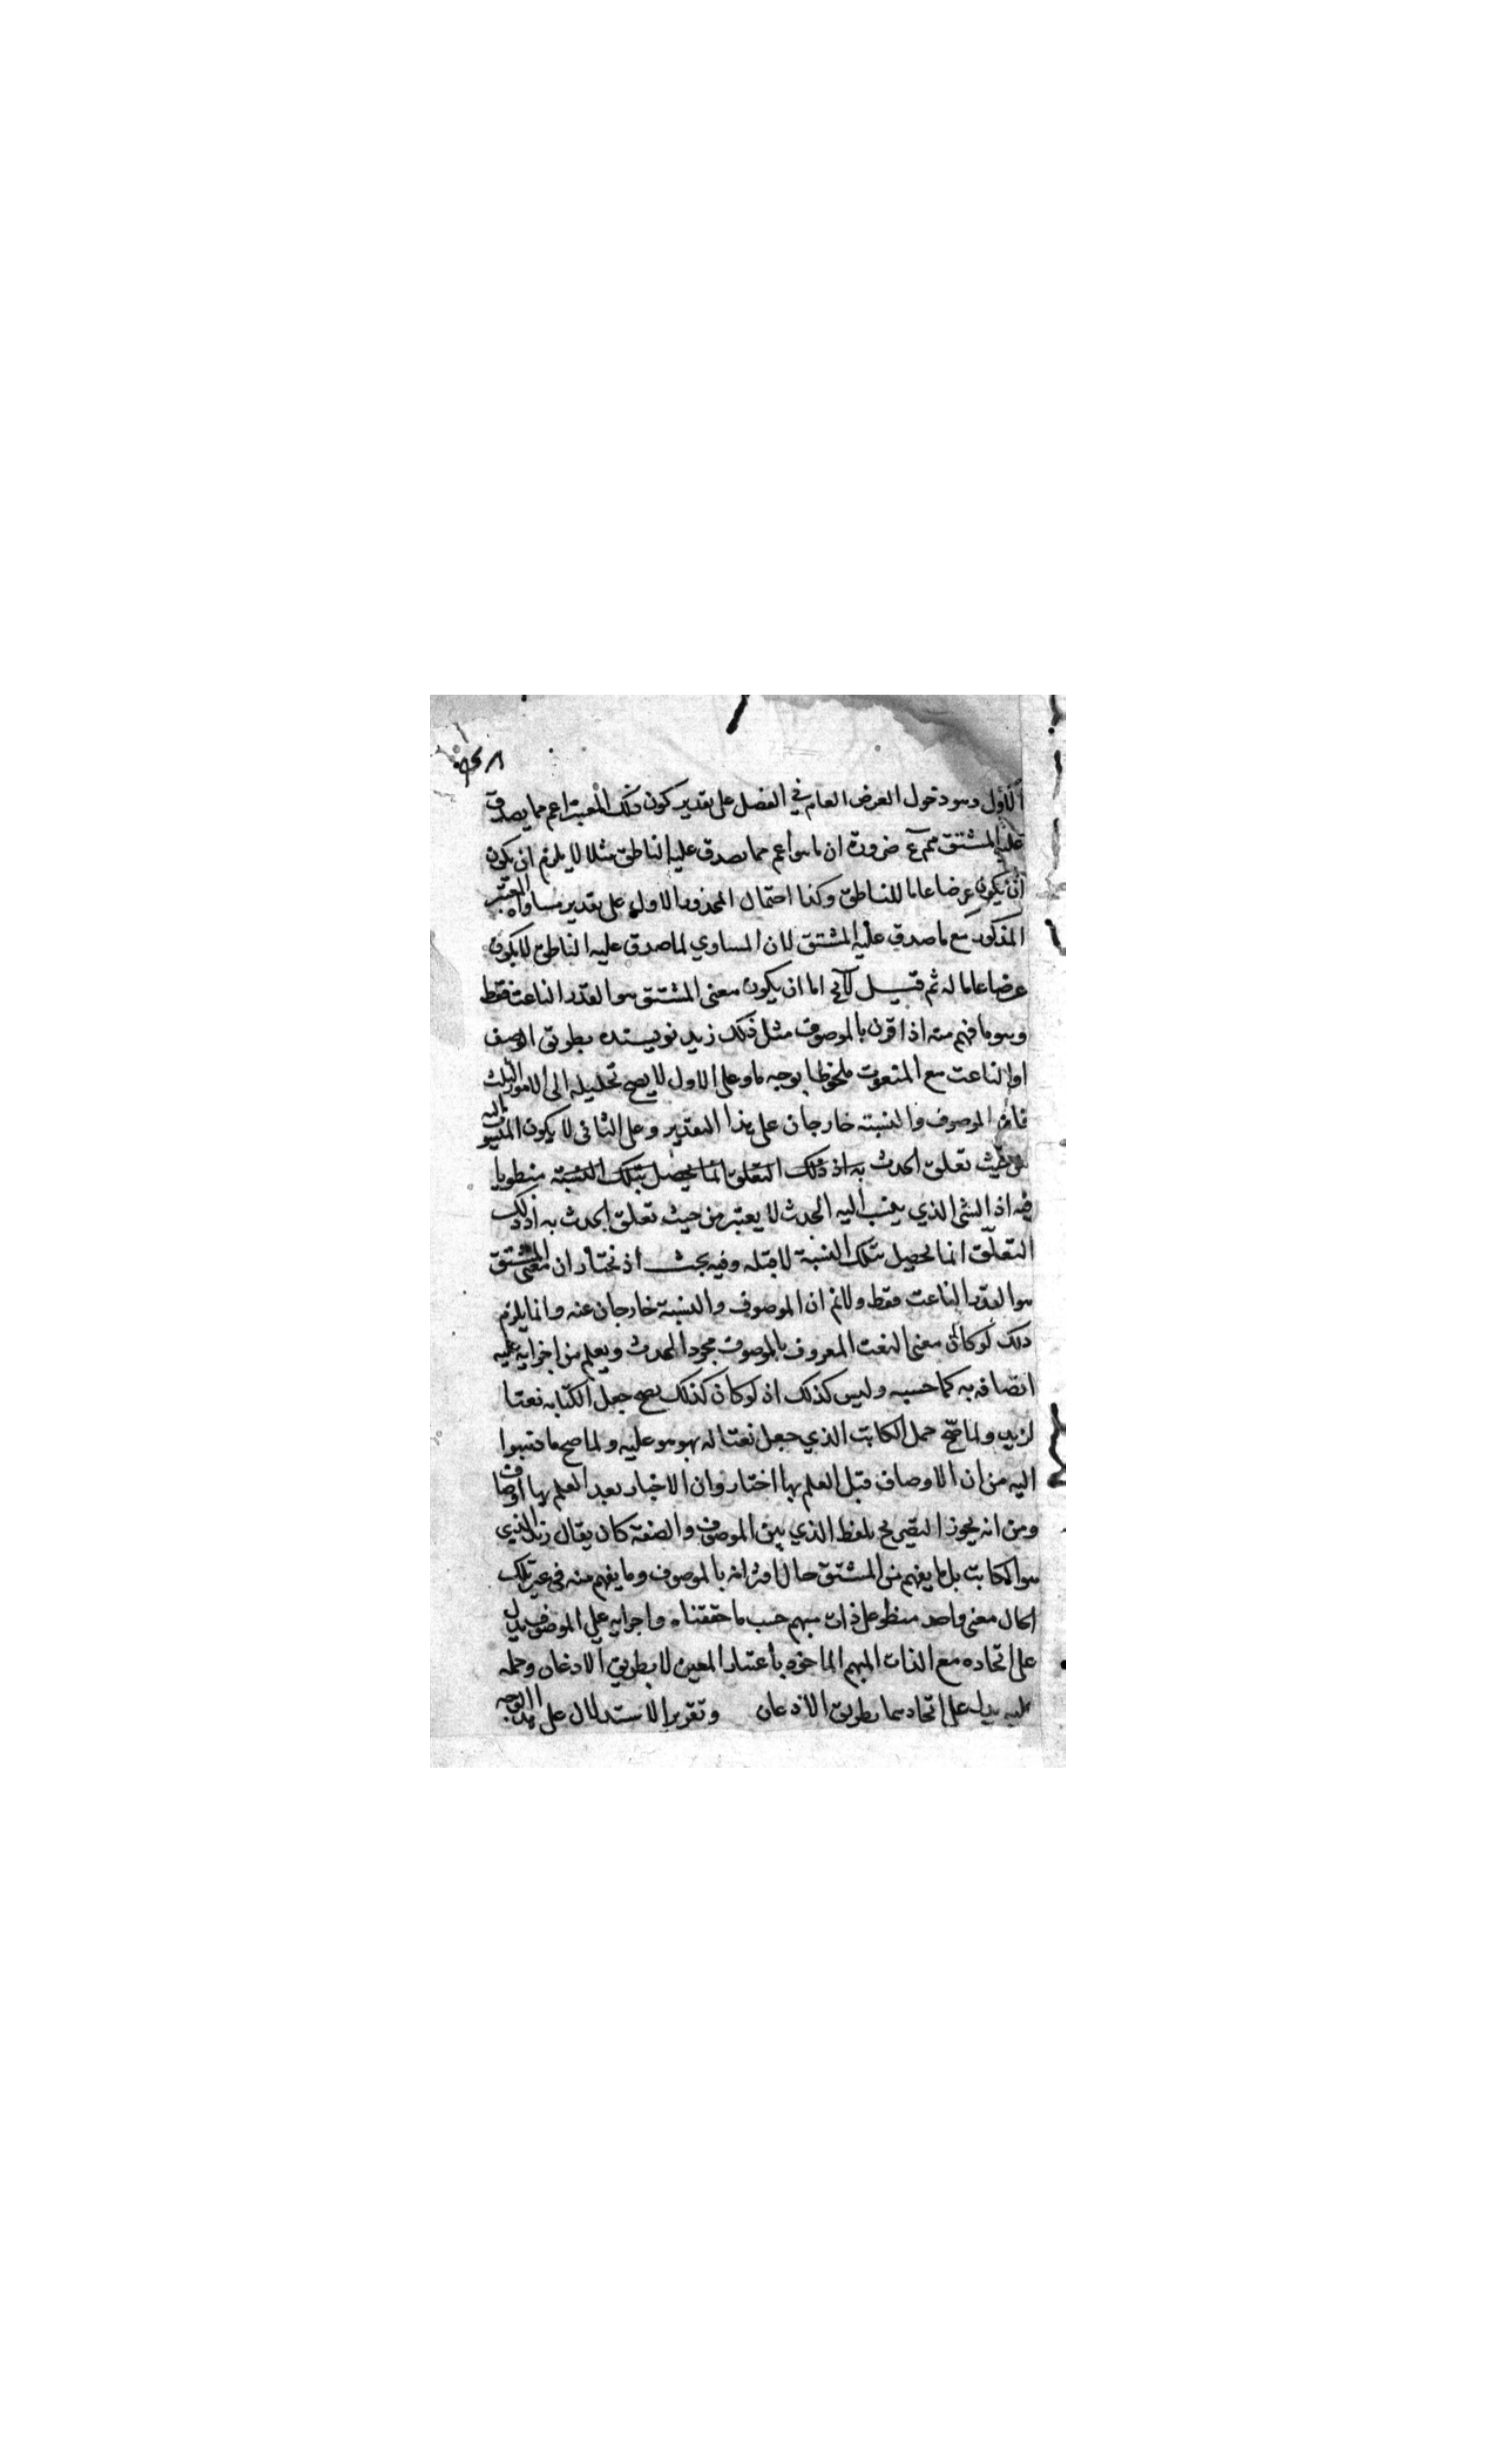 الاول وهو دخول العرض العام في الفصل على تقدير كون ذلك المعتبر اعم مما يصدق
عليه المشتق مم ضرورة ان ما هو اعم مما يصدق عليه الناطق مثلا لا يلزم ان يكون
ان يكون عرضا عاما للناطق وكذا احتمال المحذور الاول على تقدير مساواه المعتبر
المذكور مع ما صدق عليه المشتق لان المساوي لما صدق عليه الناطق لا يكون
عرضا عاما له ثم قيل اما ان يكون معنى المشتق هو القدر الناعت فقط
وهو ما فهم منه اذا قرن بالموصوف مثل ذلك زيد نويسنده بطريق الوصف
او الناعت مع المنعوت ملحوظا بوجه ما وعلى الاول لا يصح تحليله الى الامور الثلث
فان الموصوف والنسبته خارجان على هذا التقدير وعلى الثاني لا يكون المنسوب اليه
من حيث تعلق الحدث به اذ ذلك التعلق انما يحصل بتلك النسبة منطويا
فيه اذ الشي الذي ينسب اليه الحدث لا يعتبر من حيث تعلق الحدث به اذ ذلك
التعلق انما يحصل بتلك النسبة لا قبله وفيه بحث اذ نختار ان معنى المشتق
هو القدر الناعت فقط ولانم ان الموصوف والنسبة خارجان عنه وانما يلزم
ذلك لو كان معنى النعت المعروف بالموصوف مجرد الحدث ويعلم من اجرايه عليه
اتصافه به كما حسبه وليس كذلك اذ لو كان كذلك يصح جعل الكتابه نعتا
لزيد ولما صح حمل الكاتب الذي جعل نعتا له بهو هو عليه ولما صح ما ذهبوا
اليه من ان الاوصاف قبل العلم بها اخبار وان الاخبار بعد العلم بها اوصاف
ومن انه يجوز التصريح بلفظ الذي بين الموصوف والصفة كان يقال زيد الذي
هو الكاتب بل ما يفهم من المشتق حال اقترانه بالموصوف وما يفهم منه في غير تلك
الحال معنى واحد منطو على ذات مبهم حسب ما حققناه واجرايه على الموصوف يدل
على اتحاده مع الذات المبهم الماخوذ باعتبار المعين لا بطريق الاذعان وحمله
عليه يدل على اتحادهما بطريق الاذعان وتقرير الاستدلال على هذا الوجه